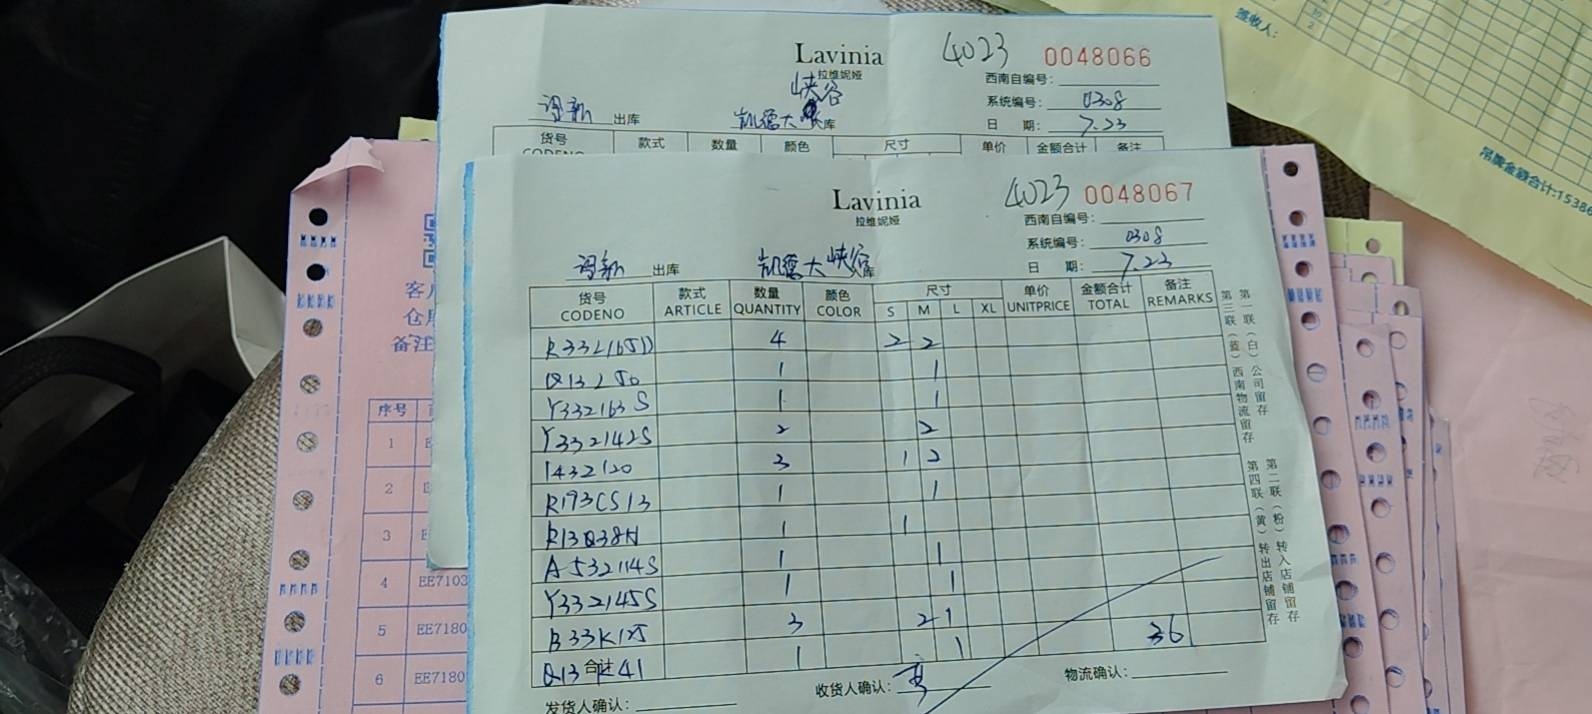 Lavinia
拉维妮娅
4023 0048066
西南自编号：
系统编号： 0308
日 期： 7.23
出库
峡谷
凯德大 库
货号 款式 数量 颜色 尺寸 单价 金额合计 备注
CODENO
Lavinia
拉维妮娅
4023 0048067
西南自编号：
系统编号： 0308
日 期： 7.23
出库 凯德大峡谷 库
货号 款式 数量 颜色 尺寸 单价 金额合计 备注
CODENO ARTICLE QUANTITY COLOR S M L XL UNITPRICE TOTAL REMARKS
4 2 2
1 1
Y332163S 1 1
Y332142S 2 2
1432120 3 1 2
R173CS13 1 1
1 1
A532114S 1 1
Y332145S 1 1
B33K125 3 2 1
Q13K41 1 1
合计
36
发货人确认：
收货人确认：
物流确认：
第一联（白）公司留存
第二联（粉）转入店铺留存
第三联（蓝）西南物流留存
第四联（黄）转出店铺留存
客
仓
备注
序号
1 E
2
3 E
4 EE7103
5 EE7180
6 EE7180
签收人：
吊牌金额合计：15386